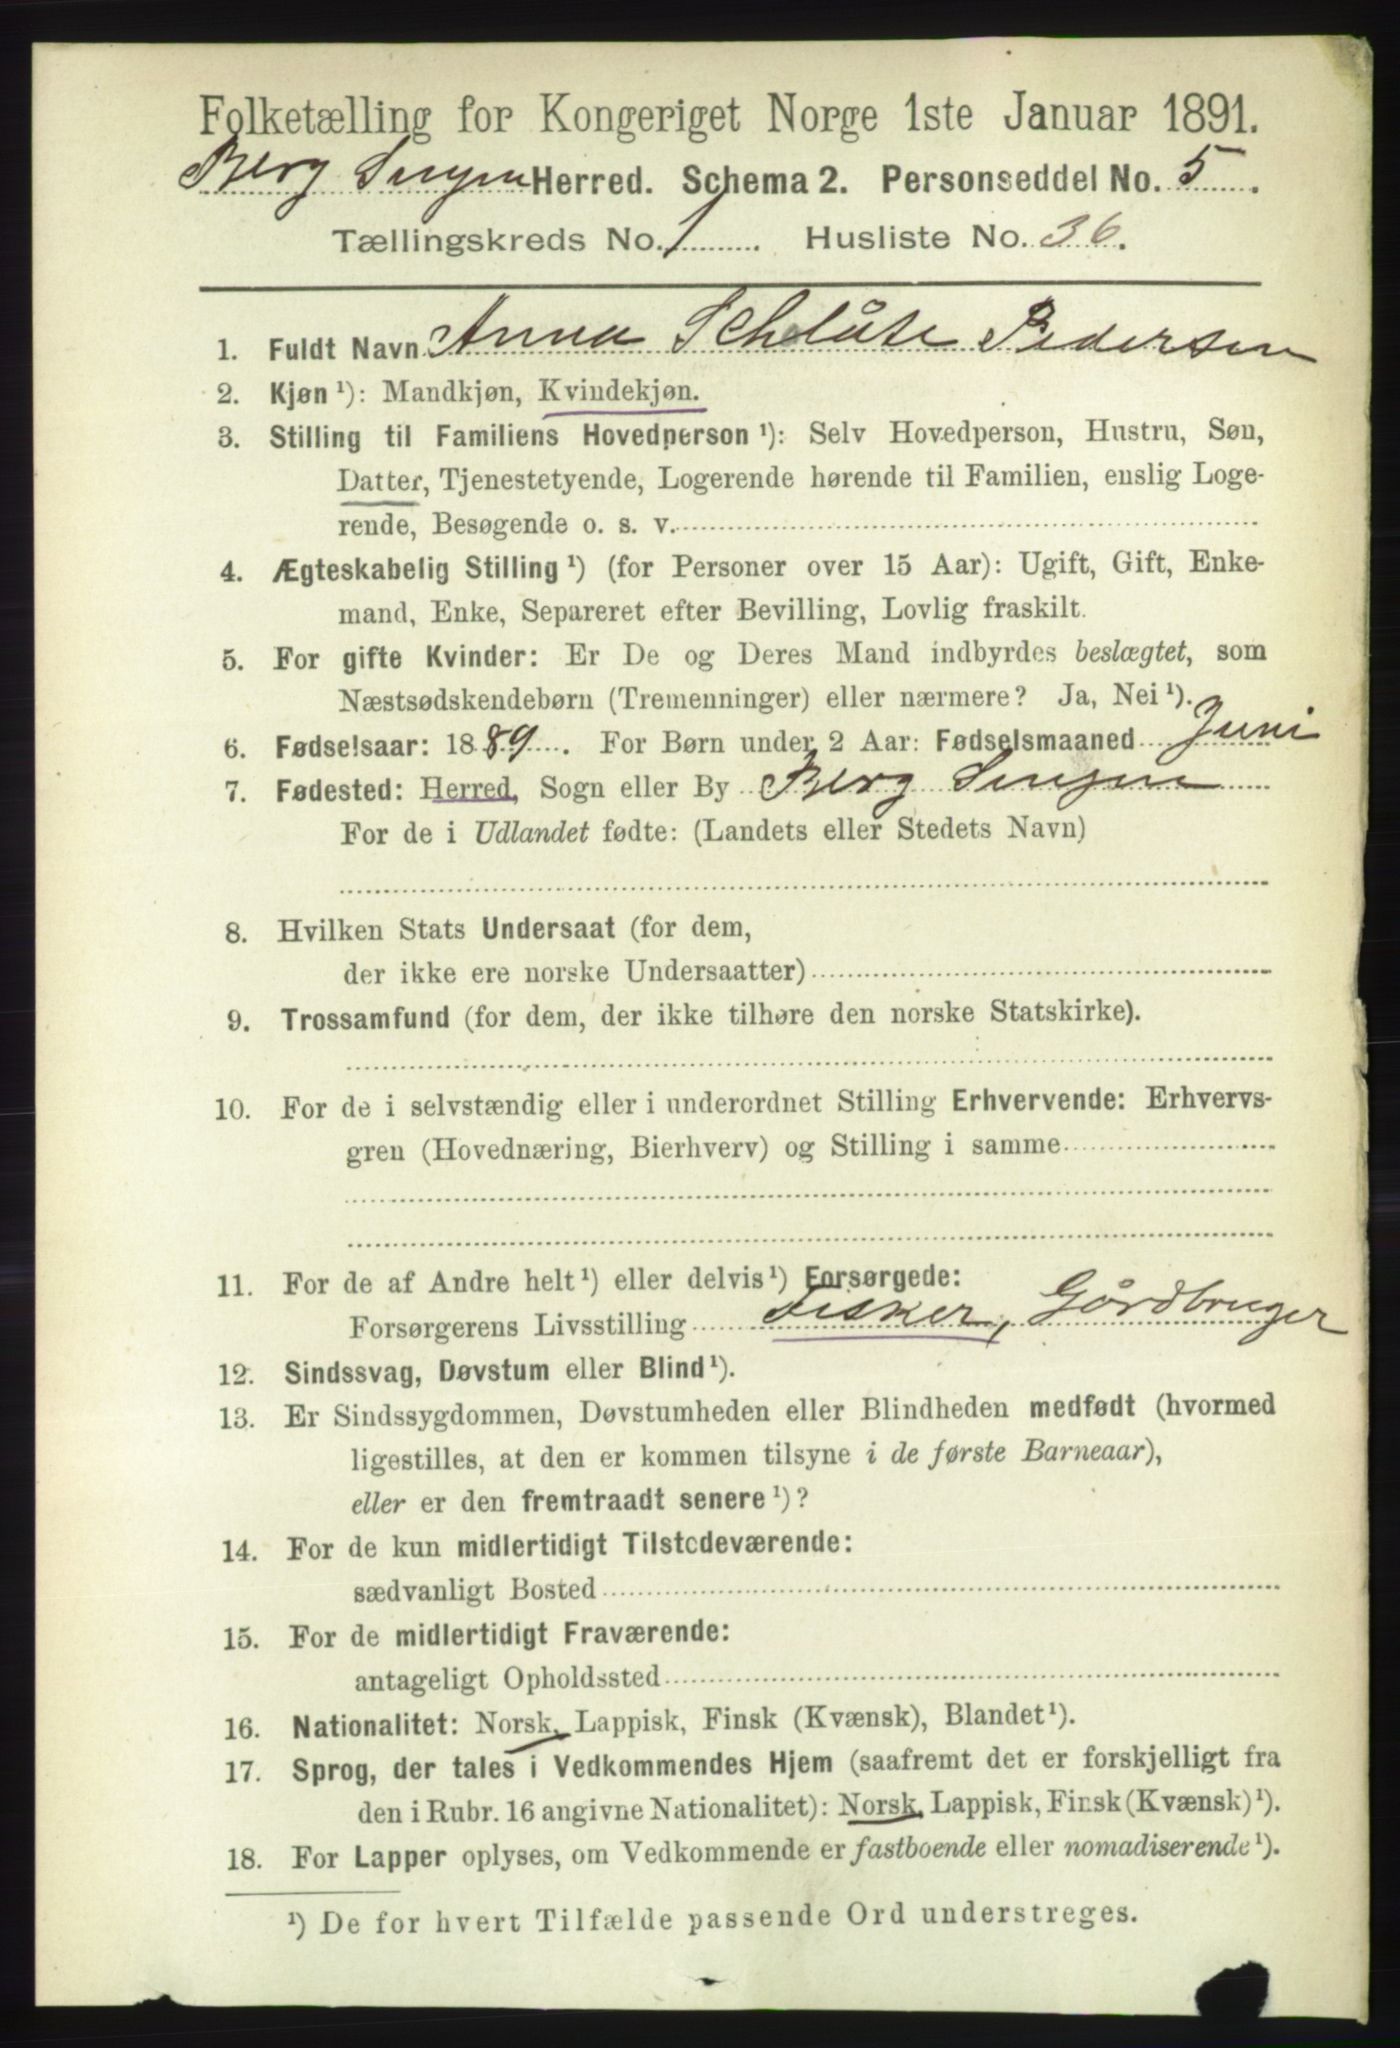 Folketælling for Kongeriget Norge 1ste Januar 1891.
Berg Senjen Herred. Schema 2. Personseddel No. 5.
Tællingskreds No. 1. Husliste No. 36.
1. Fuldt Navn Anna Schlüte Pedersen
2. Kjøn ¹): Mandkjøn, Kvindekjøn.
3. Stilling til Familiens Hovedperson ¹): Selv Hovedperson, Hustru, Søn,
Datter, Tjenestetyende, Logerende hørende til Familien, enslig Loge-
rende, Besøgende o. s. v.
4. Ægteskabelig Stilling ¹) (for Personer over 15 Aar): Ugift, Gift, Enke-
mand, Enke, Separeret efter Bevilling, Lovlig fraskilt.
5. For gifte Kvinder: Er De og Deres Mand indbyrdes beslægtet, som
Næstsødskendebørn (Tremenninger) eller nærmere? Ja, Nei ¹).
6. Fødselsaar: 1889. For Børn under 2 Aar: Fødselsmaaned Juni
7. Fødested: Herred, Sogn eller By Berg Senjen
For de i Udlandet fødte: (Landets eller Stedets Navn)
8. Hvilken Stats Undersaat (for dem,
der ikke ere norske Undersaatter)
9. Trossamfund (for dem, der ikke tilhøre den norske Statskirke).
10. For de i selvstændig eller i underordnet Stilling Erhvervende: Erhvervs-
gren (Hovednæring, Bierhverv) og Stilling i samme
11. For de af Andre helt ¹) eller delvis ¹) Forsørgede:
Forsørgerens Livsstilling Fisker, Gårdbruger
12. Sindssvag, Døvstum eller Blind ¹).
13. Er Sindssygdommen, Døvstumheden eller Blindheden medfødt (hvormed
ligestilles, at den er kommen tilsyne i de første Barneaar),
eller er den fremtraadt senere ¹)?
14. For de kun midlertidigt Tilstedeværende:
sædvanligt Bosted
15. For de midlertidigt Fraværende:
antageligt Opholdssted
16. Nationalitet: Norsk, Lappisk, Finsk (Kvænsk), Blandet ¹).
17. Sprog, der tales i Vedkommendes Hjem (saafremt det er forskjelligt fra
den i Rubr. 16 angivne Nationalitet): Norsk, Lappisk, Finsk (Kvænsk) ¹).
18. For Lapper oplyses, om Vedkommende er fastboende eller nomadiserende ¹).
¹) De for hvert Tilfælde passende Ord understreges.